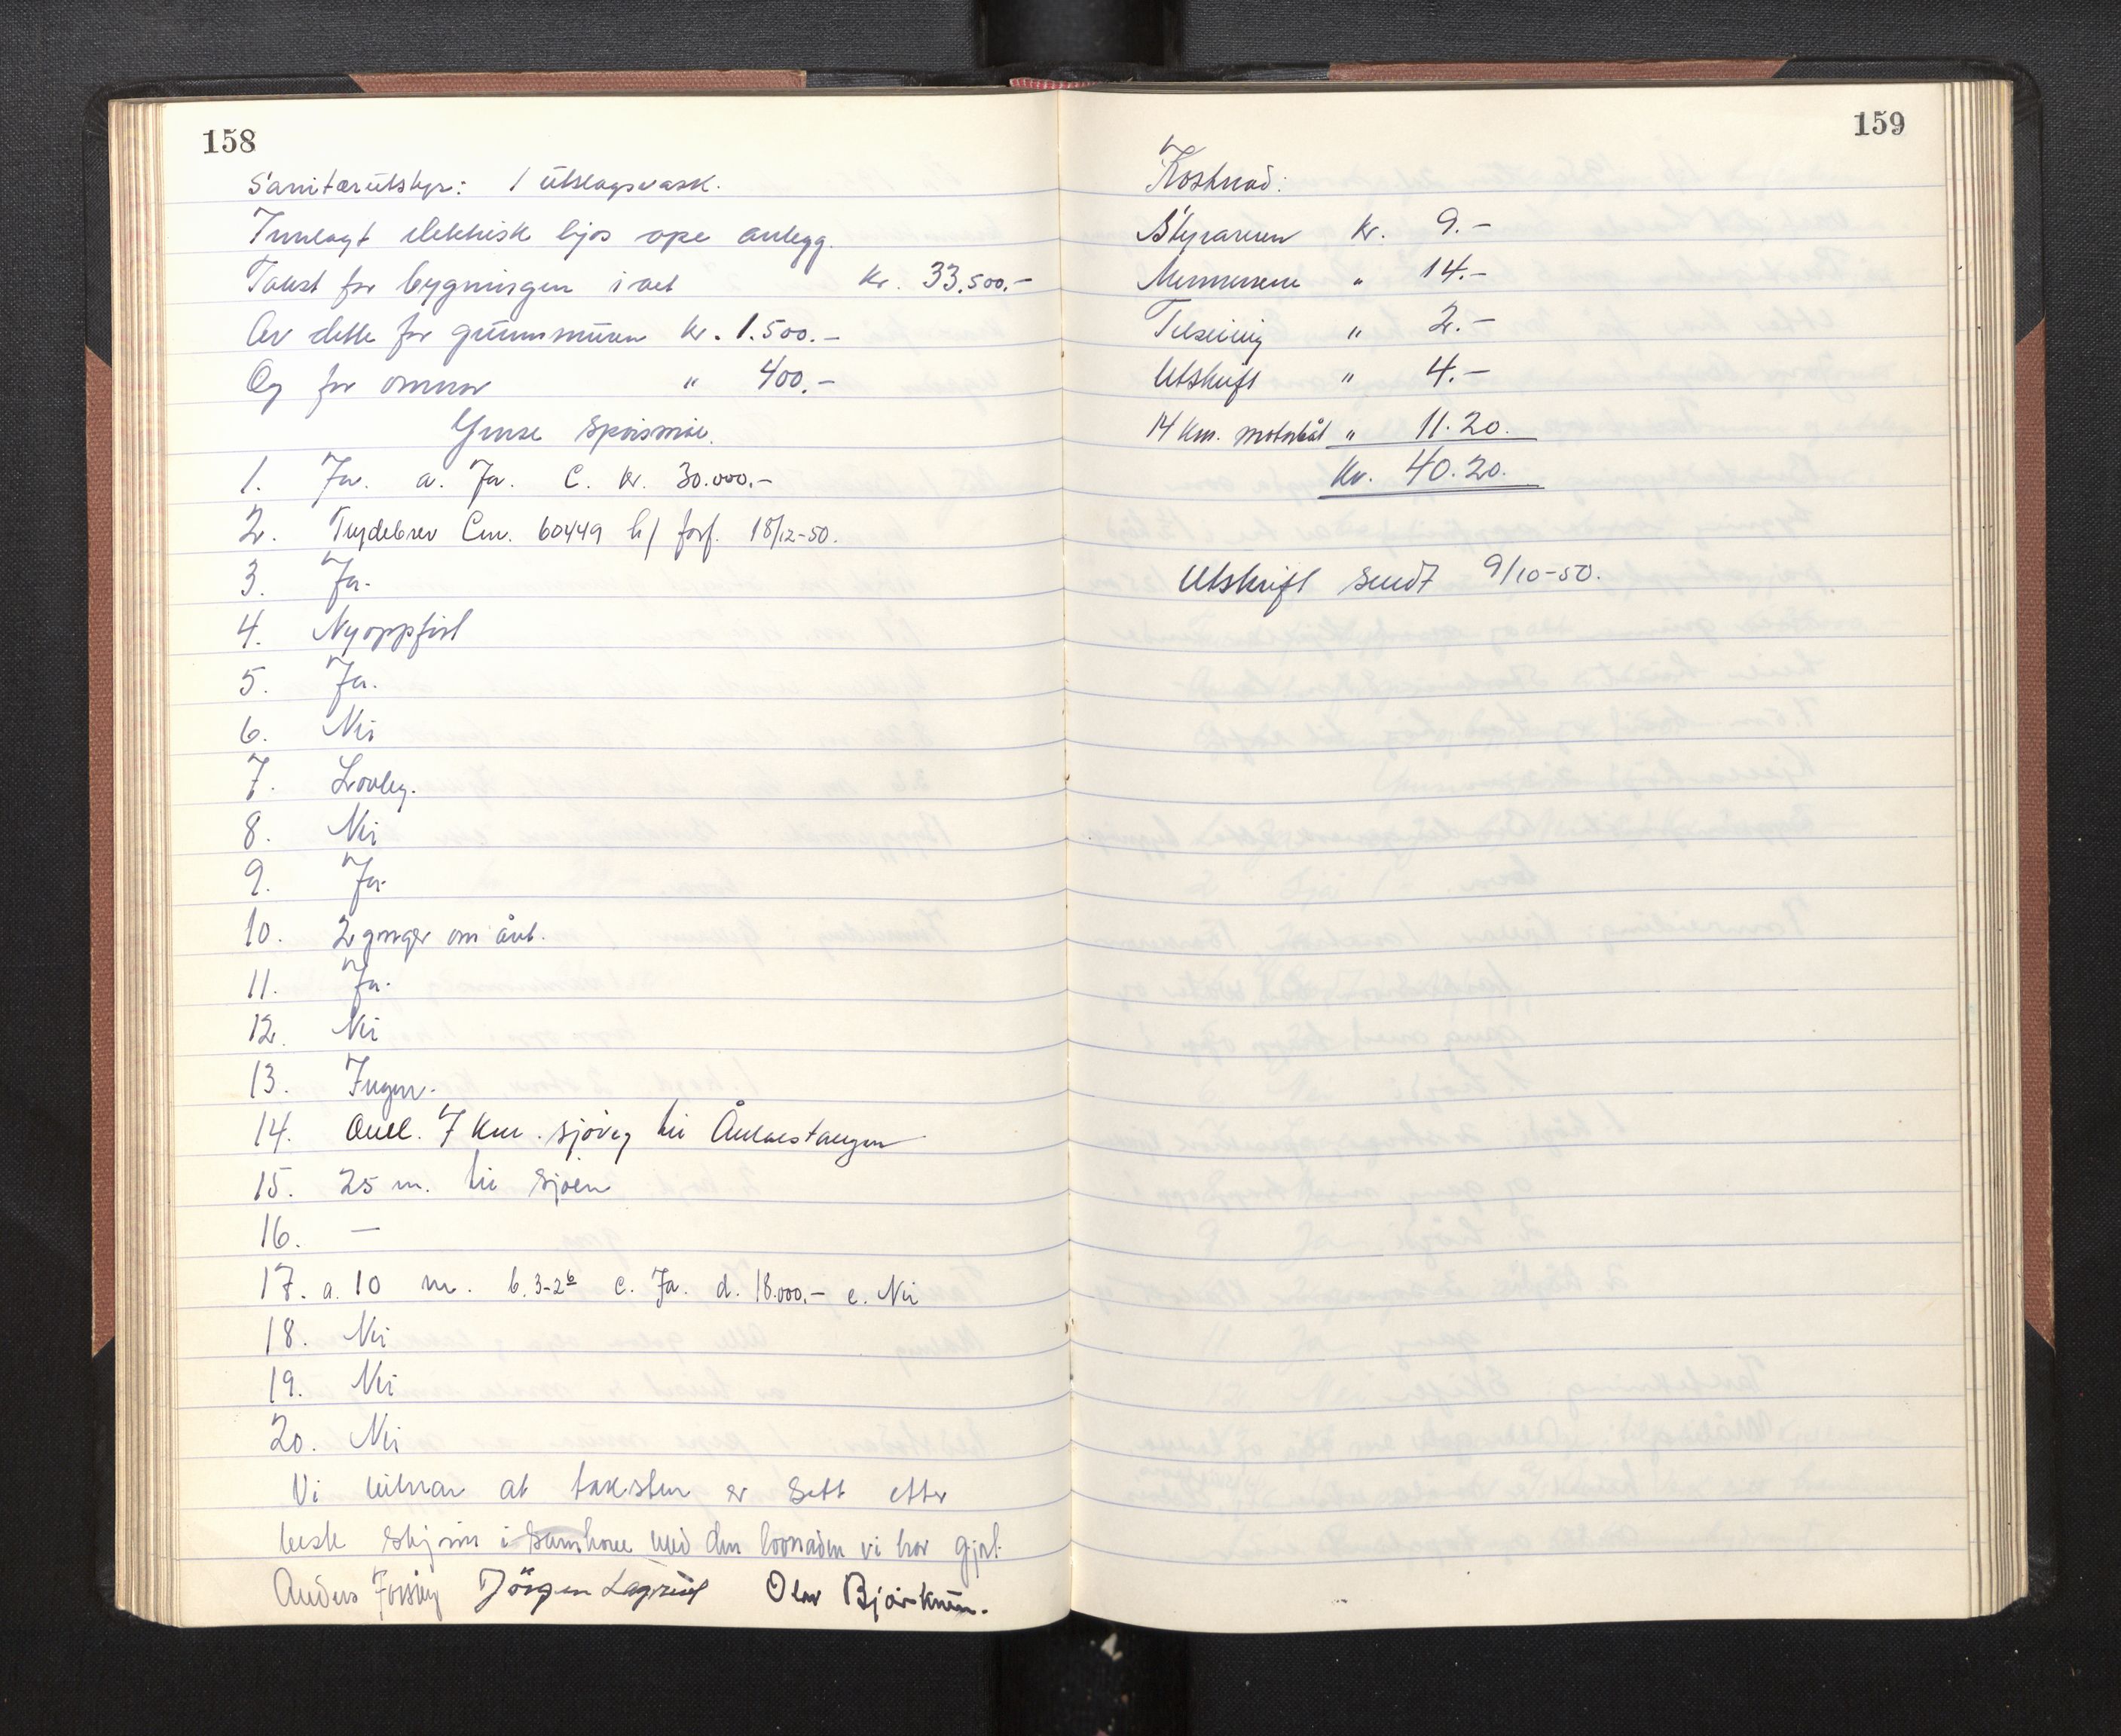 158
Sanitærutstyr: 1 utslagsvask.
Innlagt elektrisk ljos ope anlegg.
Takst for bygningen i alt kr. 33.500.-
Av dette for grunnmuren kr. 1.500.-
Og for omnar " 400.-
Ymse spørsmål.
1. Ja. a. Ja. C. kr. 30.000.-
2. Trydebrev Cnr. 60449 b/ forf. 18/12-50.
3. Ja.
4. Nyoppført
5. Ja.
6. Nei
7. Lovleg.
8. Nei
9. Ja.
10. 2 ganger om året.
11. Ja.
12. Nei
13. Ingen.
14. 7 km. sjøveg til
15. 25 m. til sjøen
16. —
17. a. 10 m. b. 3-2 c. Ja. d. 18.000.- e. Nei
18. Nei
19. Nei
20. Nei
Vi vitnar at taksten er sett etter
beste skjøn i samhøve med den lovnaden vi har gjort.
Anders Jørgen Olav
159
Kostnad:
Styraren kr. 9.-
Mennene " 14.-
Tilseiing " 2.-
Utskrift " 4.-
14 km. motorbåt " 11.20.
Kr. 40.20.
Utskrift sendt 9/10-50.